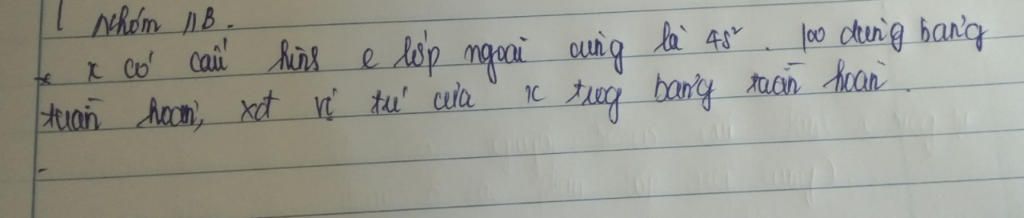 Nhóm IIB.
* X có cấu hình e lớp ngoài cùng là 4s². Ko dùng bảng
tuần hoàn, xđ vị trí của X trog bảng tuần hoàn.